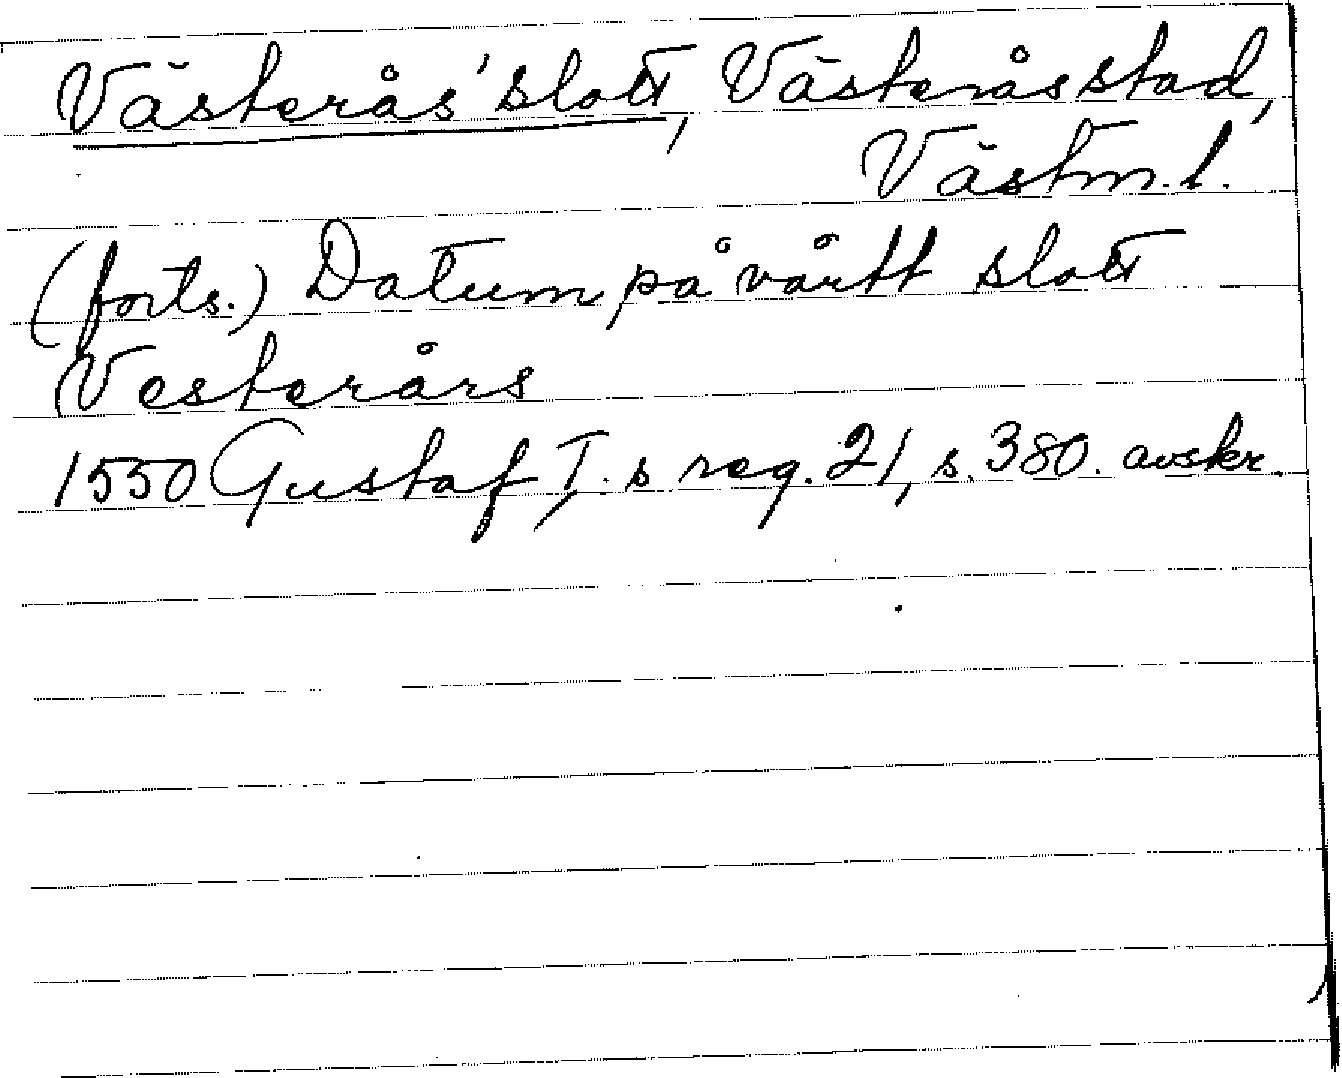 Västerås slott, Västerås stad,
Västm. l.
(forts.) Datum på vårtt slott
Vesterårs
1550 Gustaf I. s reg. 21, s. 380. avskr.